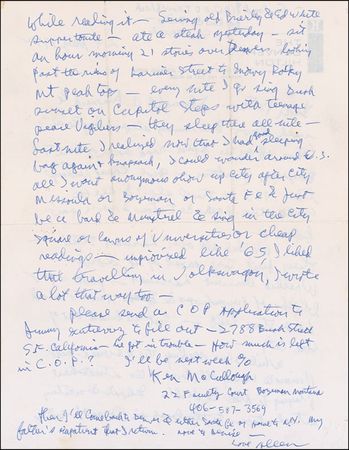 While reading it — Seeing old Brierly & Ed White
supportnite — ate a steak yesterday — sit
an hour morning 21 stories over Denver looking
past the ruins of Larimer Street to Snowy Rocky
Mt peak tops — every nite I go sing Dusk
sunset on Capitol Steps with teenage
peace Vigilers — they sleep there all nite —
Last nite I realized now that I had good sleeping
bag again & knapsack, I could wander around U.S.
all I want anonymous show up city after city
Missoula or Bozeman or Santa Fe & just
be a bard & Minstrel & sing in the City
Square or lawns of Universities or cheap
readings — improvised like '65, I liked
that travelling in Volkswagon, I wrote
a lot that way too —
please send a COP Application to
Jimmy Gutierrez to fill out — 2788 Bush Street
S.F. California — he got in trouble — How much is left
in C.O.P.? I'll be next week c/o
Ken McCullough
22 Faculty Court Bozeman Montana
406-587-3569
then I'll come back to Denver & either Santa Fe or home to N.Y. My
father's impatient that I return. Love to Denise —
Love Allen